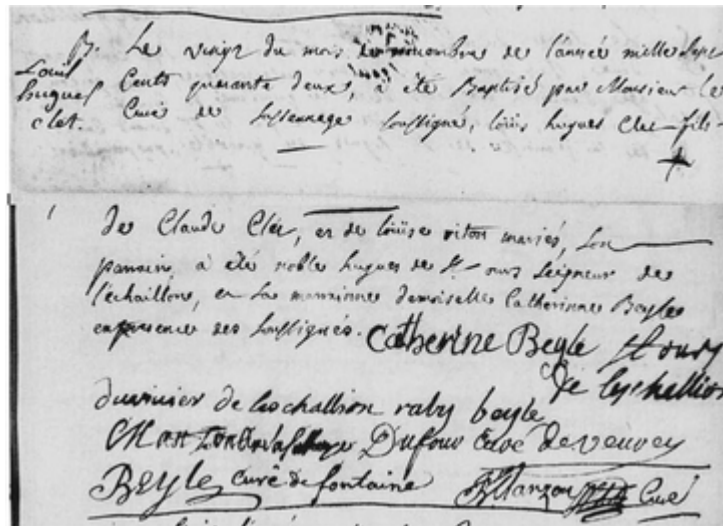 B. Le vingt du mois de novembre de l'année mille sept
Louis
hugues
clet.
Cents quarante deux, a été Baptisé par Monsieur le
Curé de Sassenage soussigné, loüis hugues Clet fils
de Claude Clet, et de loüise riton mariés, son
parrain, a été noble hugues de St. ours seigneur de
l'échaillon, et sa marrainne demoiselle Catherinne Beyle
en presence des soussignés. Catherine Beyle St ours
de Leschallion
duvivier de Leschallion raby beyle
Dufour Curé de veurey
BEYLE curé de fontaine Curé